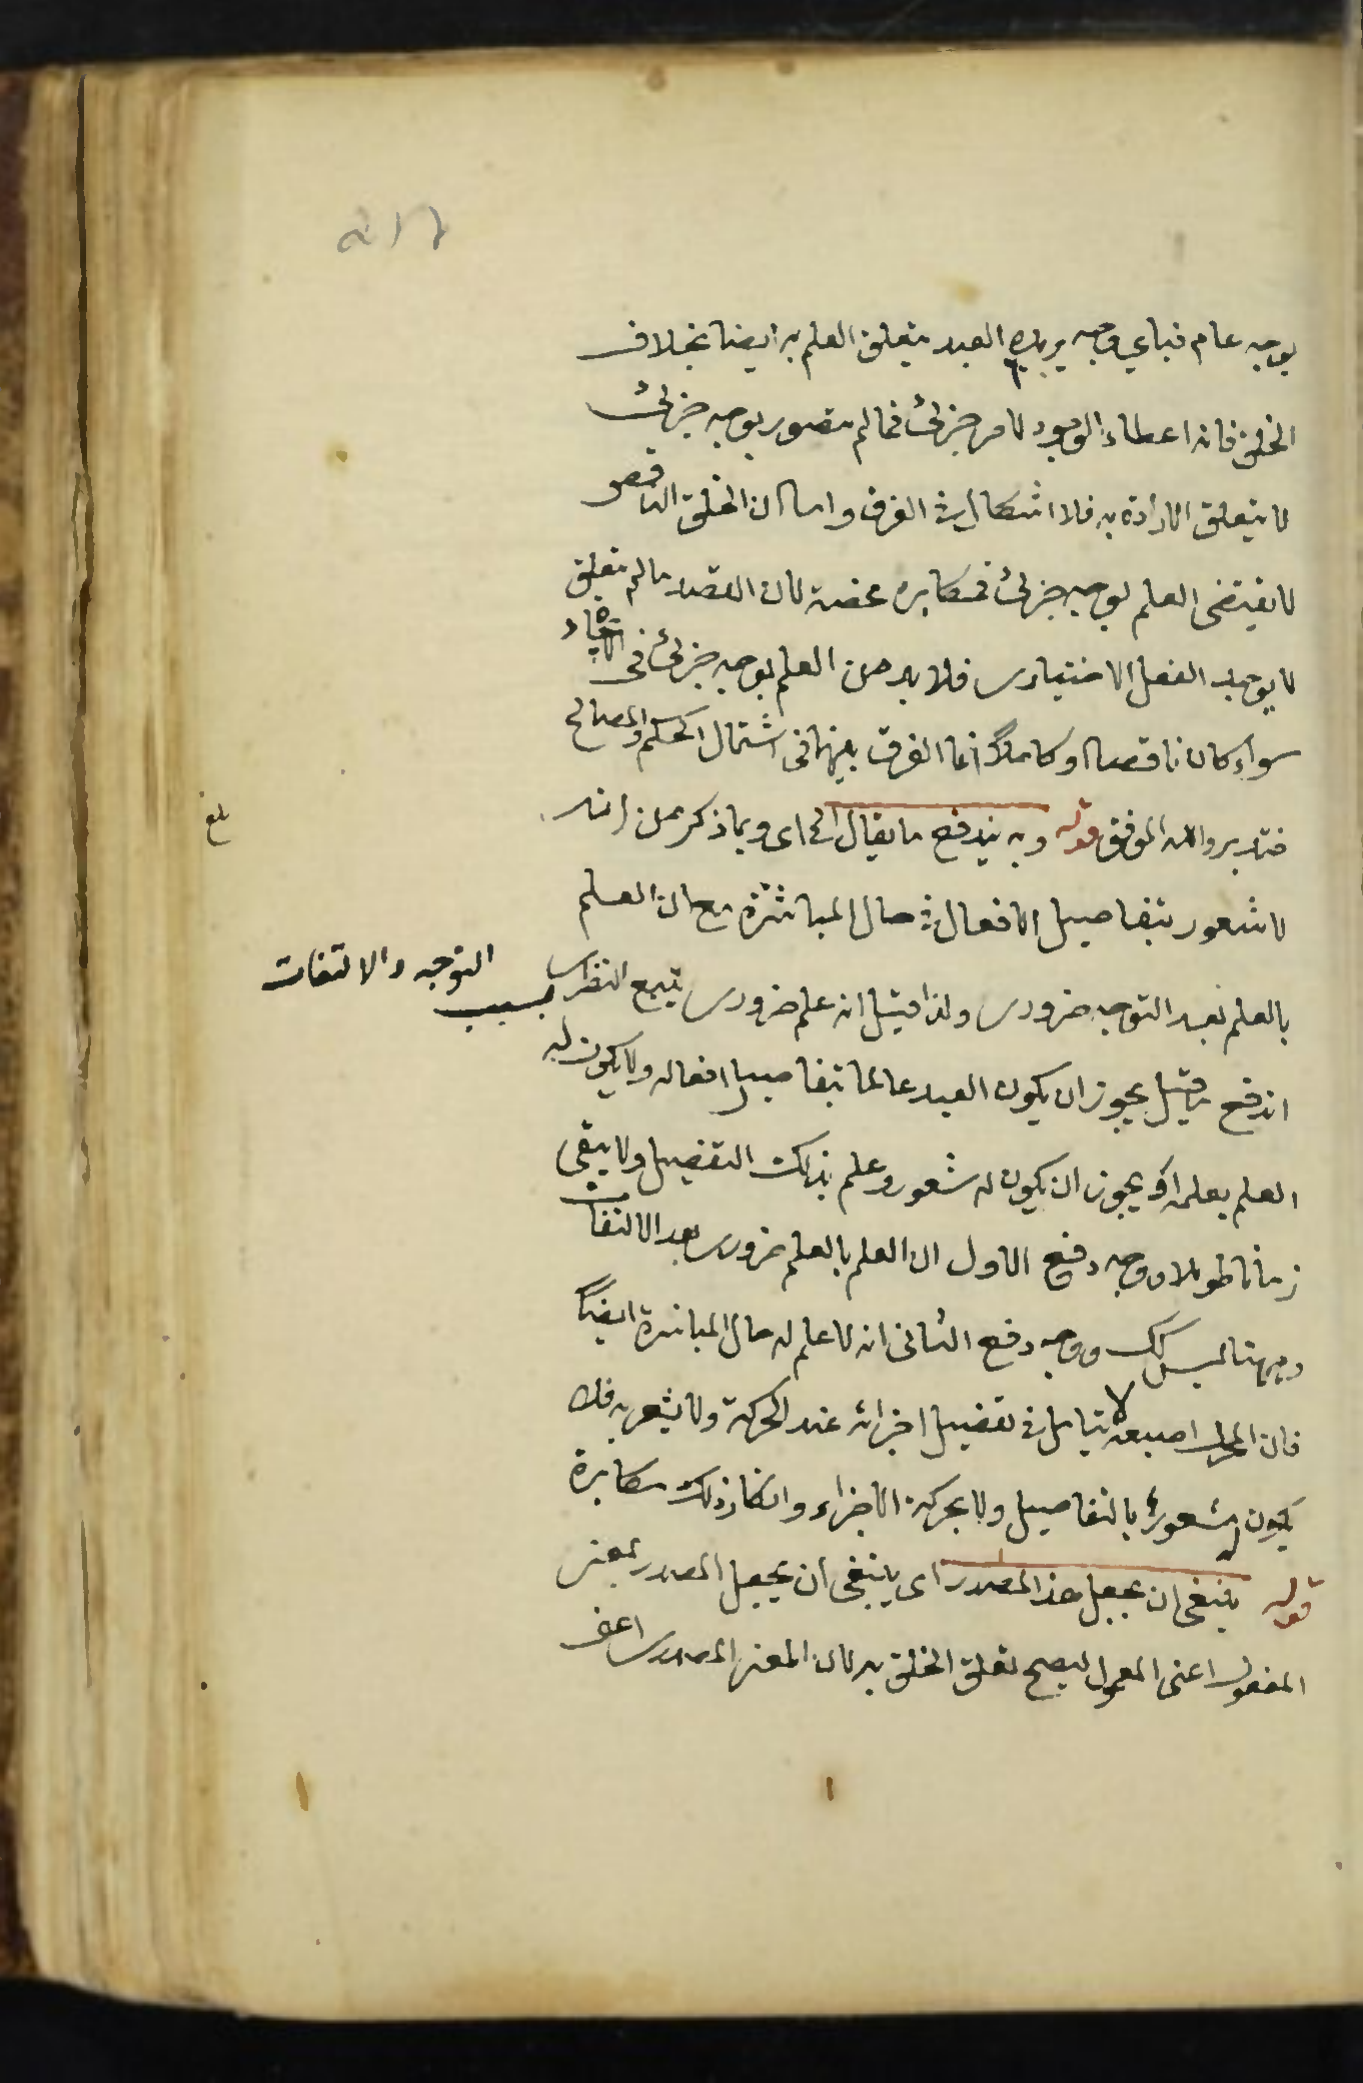 بوجه عام فباي وجه يريده العبد يتعلق العلم به ايضا بخلاف
الخلق فانه اعطاء الوجود لامر جزئى فما لم يتصور بوجه جزئى
لا يتعلق الارادة به فلا اشكال فى الفرق واما ان الخلق الناقص
لا يقتضى العلم بوجه جزئى فمكابرة محضة لان القصد ما لم يتعلق
لا يوجد الفعل الاختيارى فلا بد من العلم بوجه جزئى فى الايجاد
سواء كان ناقصا او كاملا انما الفرق بينهما فى اشتمال الحكم والمصالح
فتدبر والله الموفق قوله وبه يندفع ما يقال الخ اى وبما ذكر من انه
بلغ
لا شعور بتفاصيل الافعال فى حال المباشرة مع ان العلم
بالعلم بعد التوجه ضرورى ولذا قيل انه علم ضرورى يتبع النظرى بسبب التوجه والالتفات
اندفع ما قيل يجوز ان يكون العبد عالما بتفاصيل افعاله ولا يكون له
العلم بعلمه او يجوز ان يكون له شعور وعلم بذلك التفصيل ولا يبقى
زمانا طويلا ووجه دفع الاول ان العلم بالعلم ضرورى بعد الالتفات
وههنا ليس كك ووجه دفع الثانى انه لا علم له حال المباشرة ايضا
فان المحرك اصبعه لا يتامل فى تفصيل اجزائه عند الحركة ولا يشعر به فلا
يكون له شعور بالتفاصيل ولا بحركة الاجزاء وانكار ذلك مكابرة
قوله ينبغى ان يجعل هذا المصدر اى ينبغى ان يجعل المصدر بمعنى
المفعول اعنى المعمول ليصح تعلق الخلق به لان المعنى المصدرى اعنى